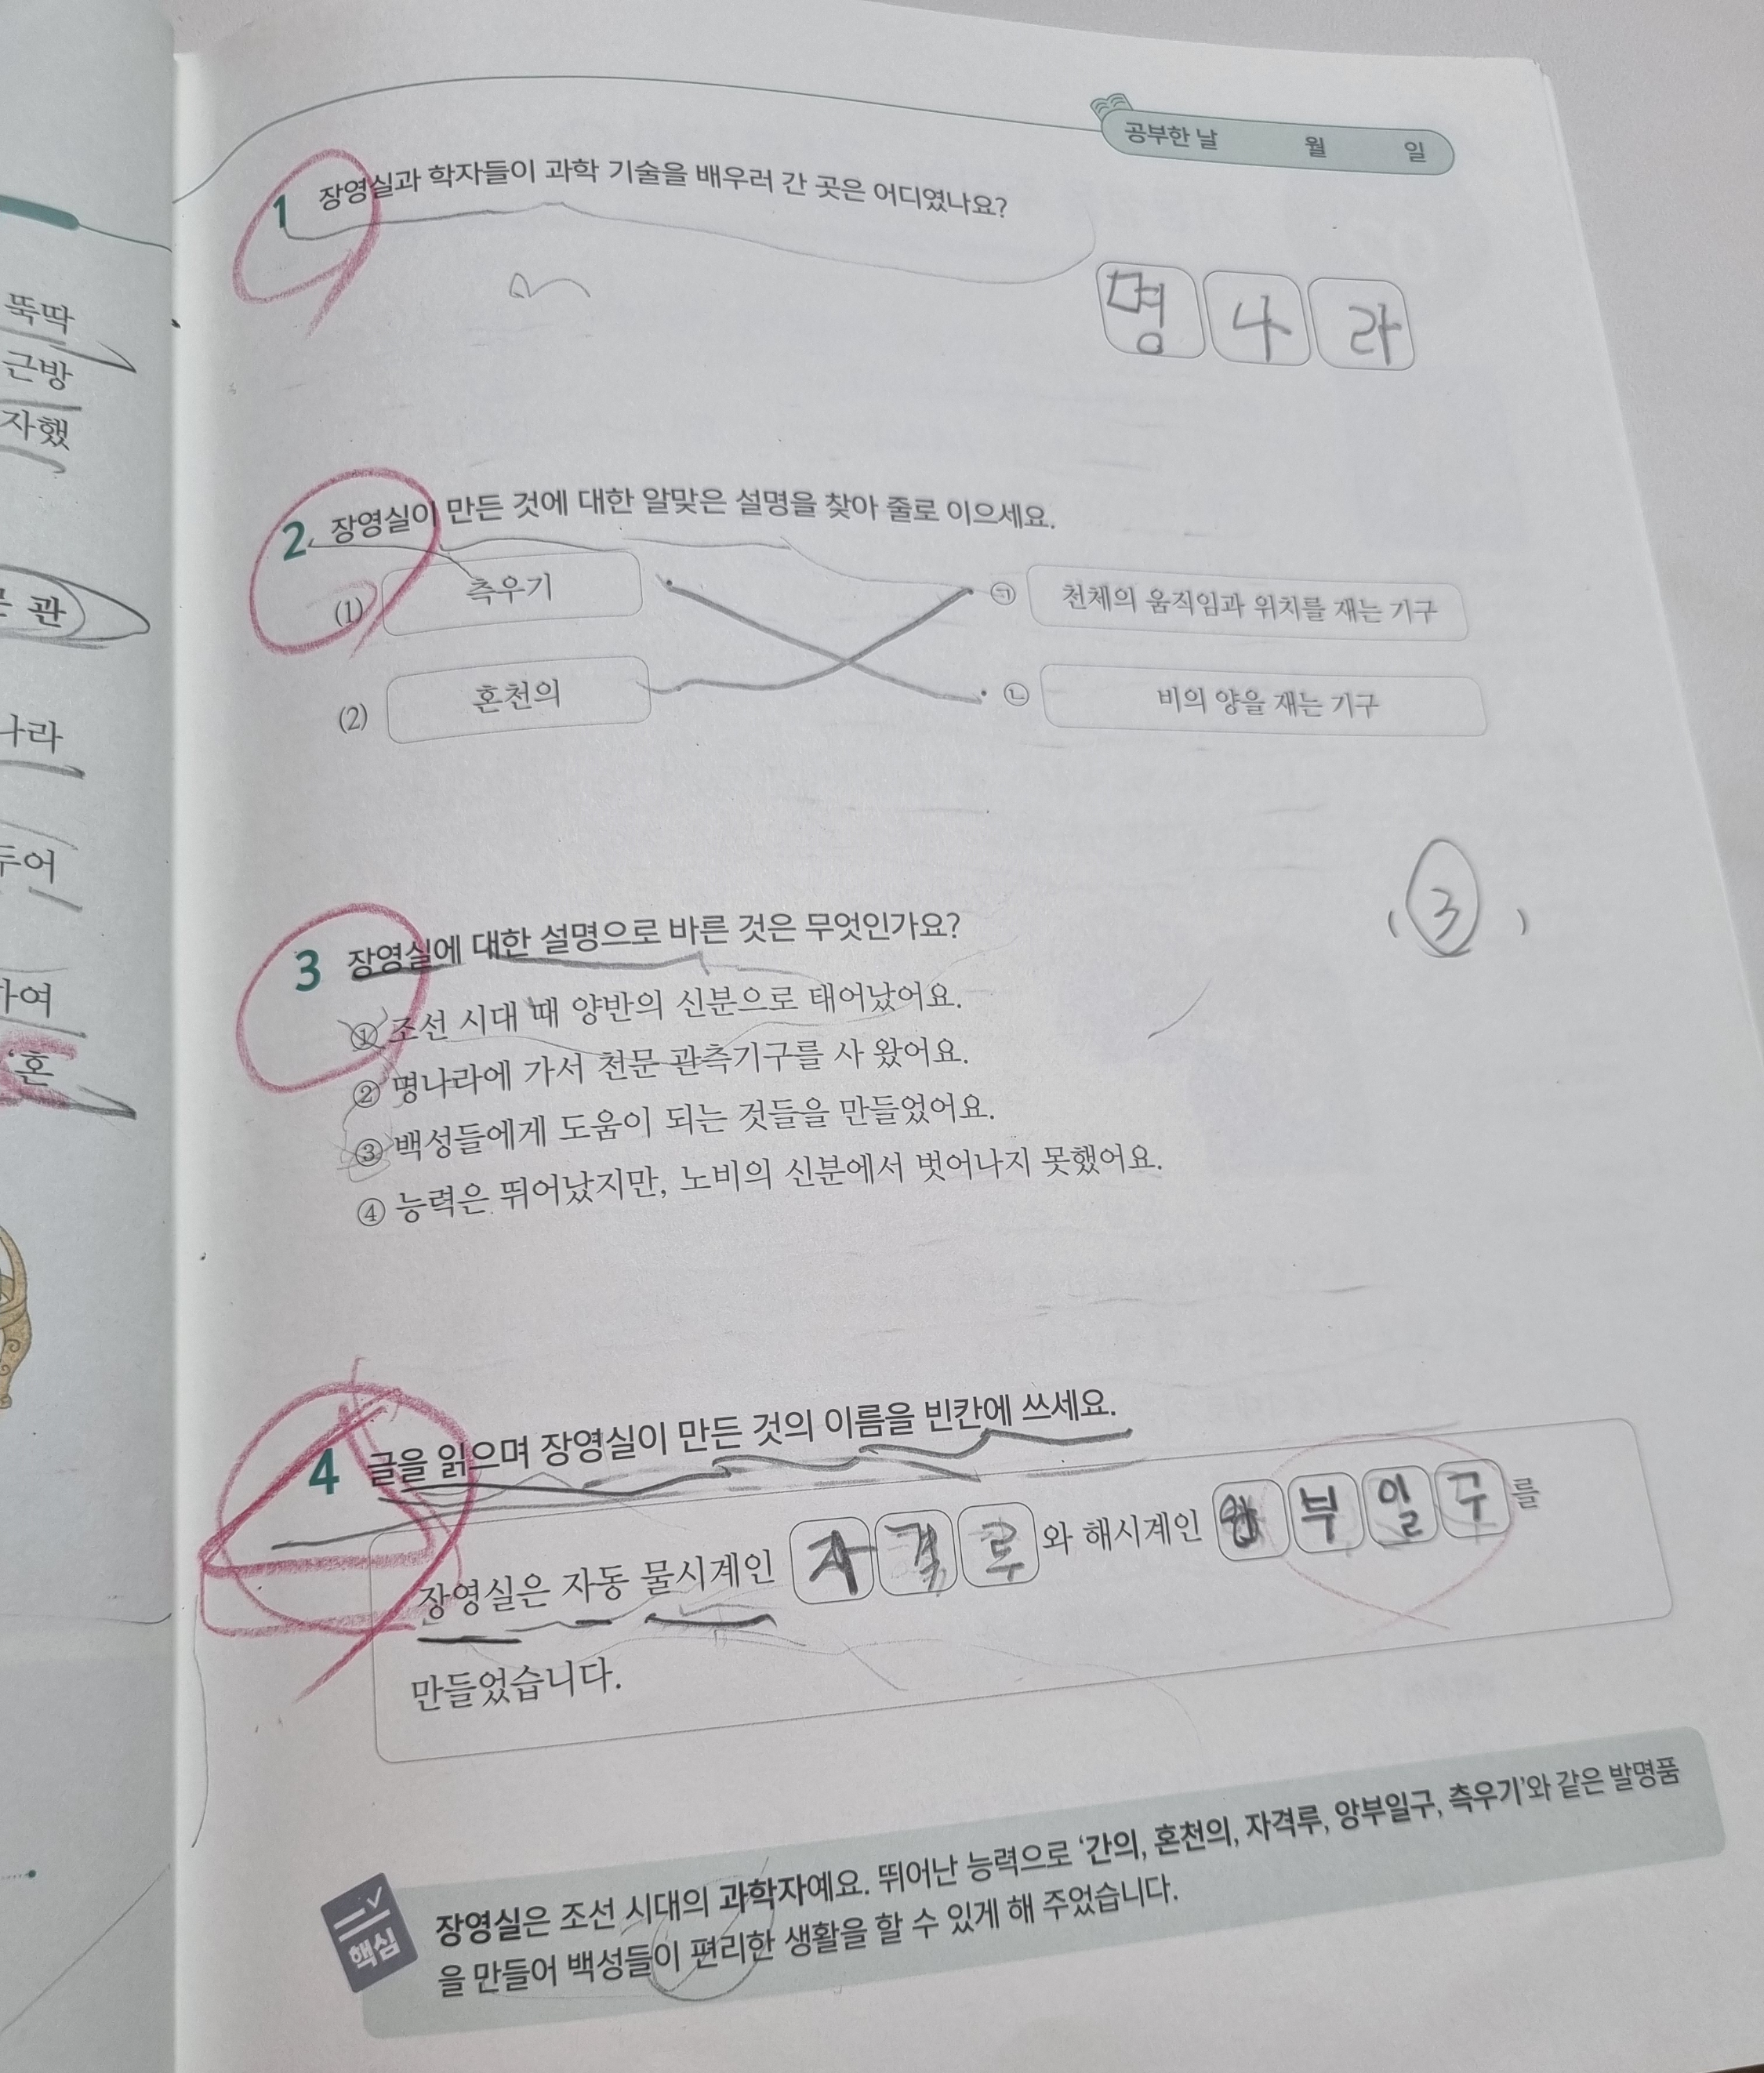 뚝딱
근방
자했
관
나라
두어
하여
'혼
공부한 날 월 일
1 장영실과 학자들이 과학 기술을 배우러 간 곳은 어디였나요?
명나라
2 장영실이 만든 것에 대한 알맞은 설명을 찾아 줄로 이으세요.
(1) 측우기 ㉠ 천체의 움직임과 위치를 재는 기구
(2) 혼천의 ㉡ 비의 양을 재는 기구
3 장영실에 대한 설명으로 바른 것은 무엇인가요? ( 3 )
① 조선 시대 때 양반의 신분으로 태어났어요.
② 명나라에 가서 천문 관측기구를 사 왔어요.
③ 백성들에게 도움이 되는 것들을 만들었어요.
④ 능력은 뛰어났지만, 노비의 신분에서 벗어나지 못했어요.
4 글을 읽으며 장영실이 만든 것의 이름을 빈칸에 쓰세요.
장영실은 자동 물시계인 자격루와 해시계인 앙부일구를
만들었습니다.
핵심
장영실은 조선 시대의 과학자예요. 뛰어난 능력으로 ‘간의, 혼천의, 자격루, 앙부일구, 측우기’와 같은 발명품
을 만들어 백성들이 편리한 생활을 할 수 있게 해 주었습니다.